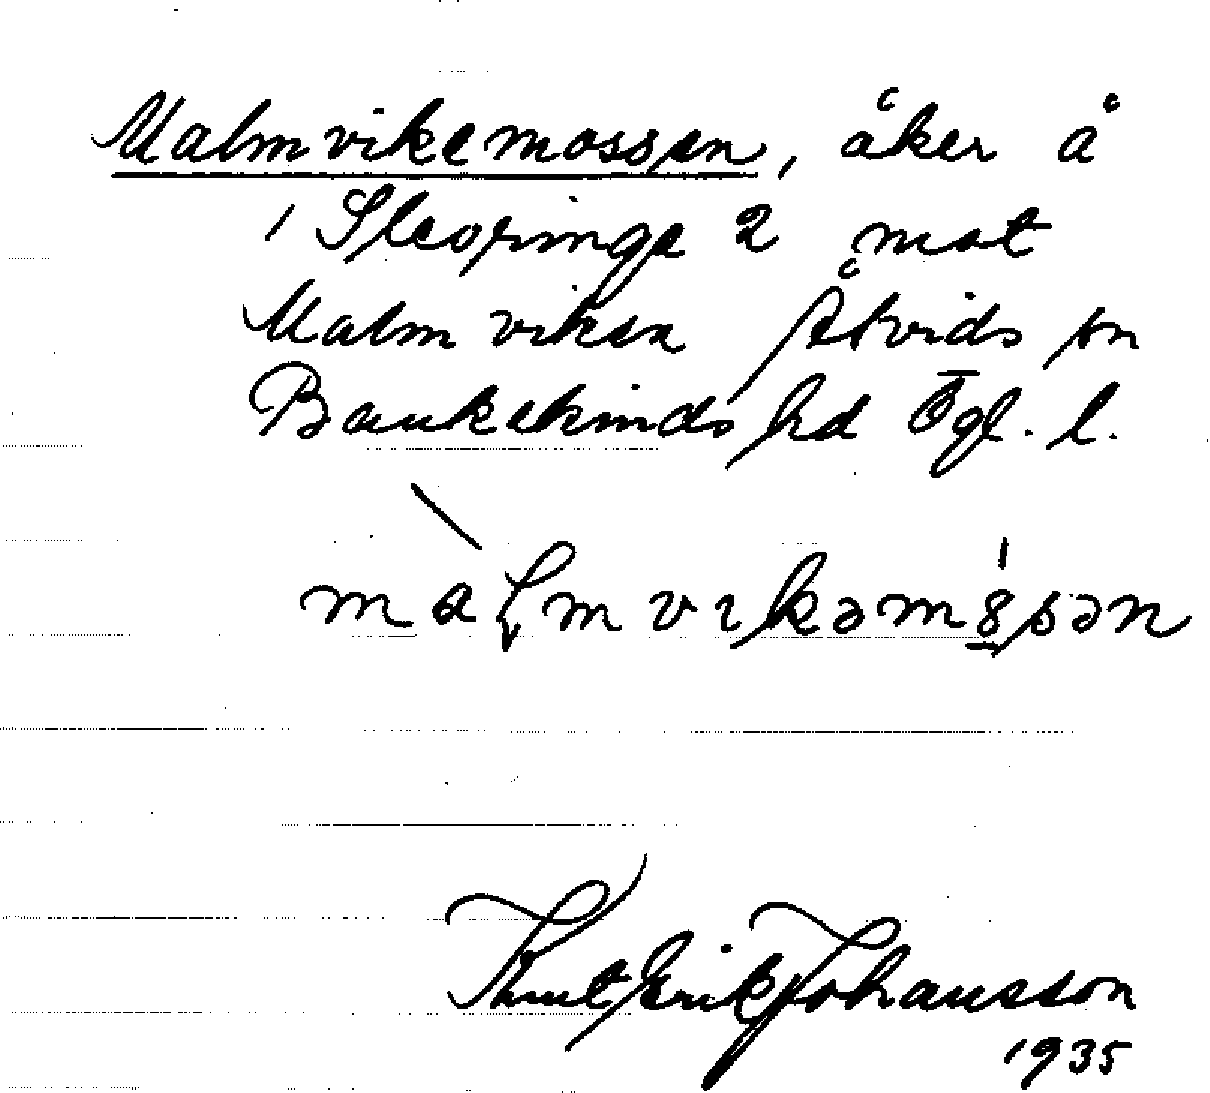 Malmvikemossen, åker å
1 Slevringe 2 mot
Malmviken Åtvids sn
Bankekinds hd Ögl. l.
malmvikəm8sən
Knut Erik Johansson
1935